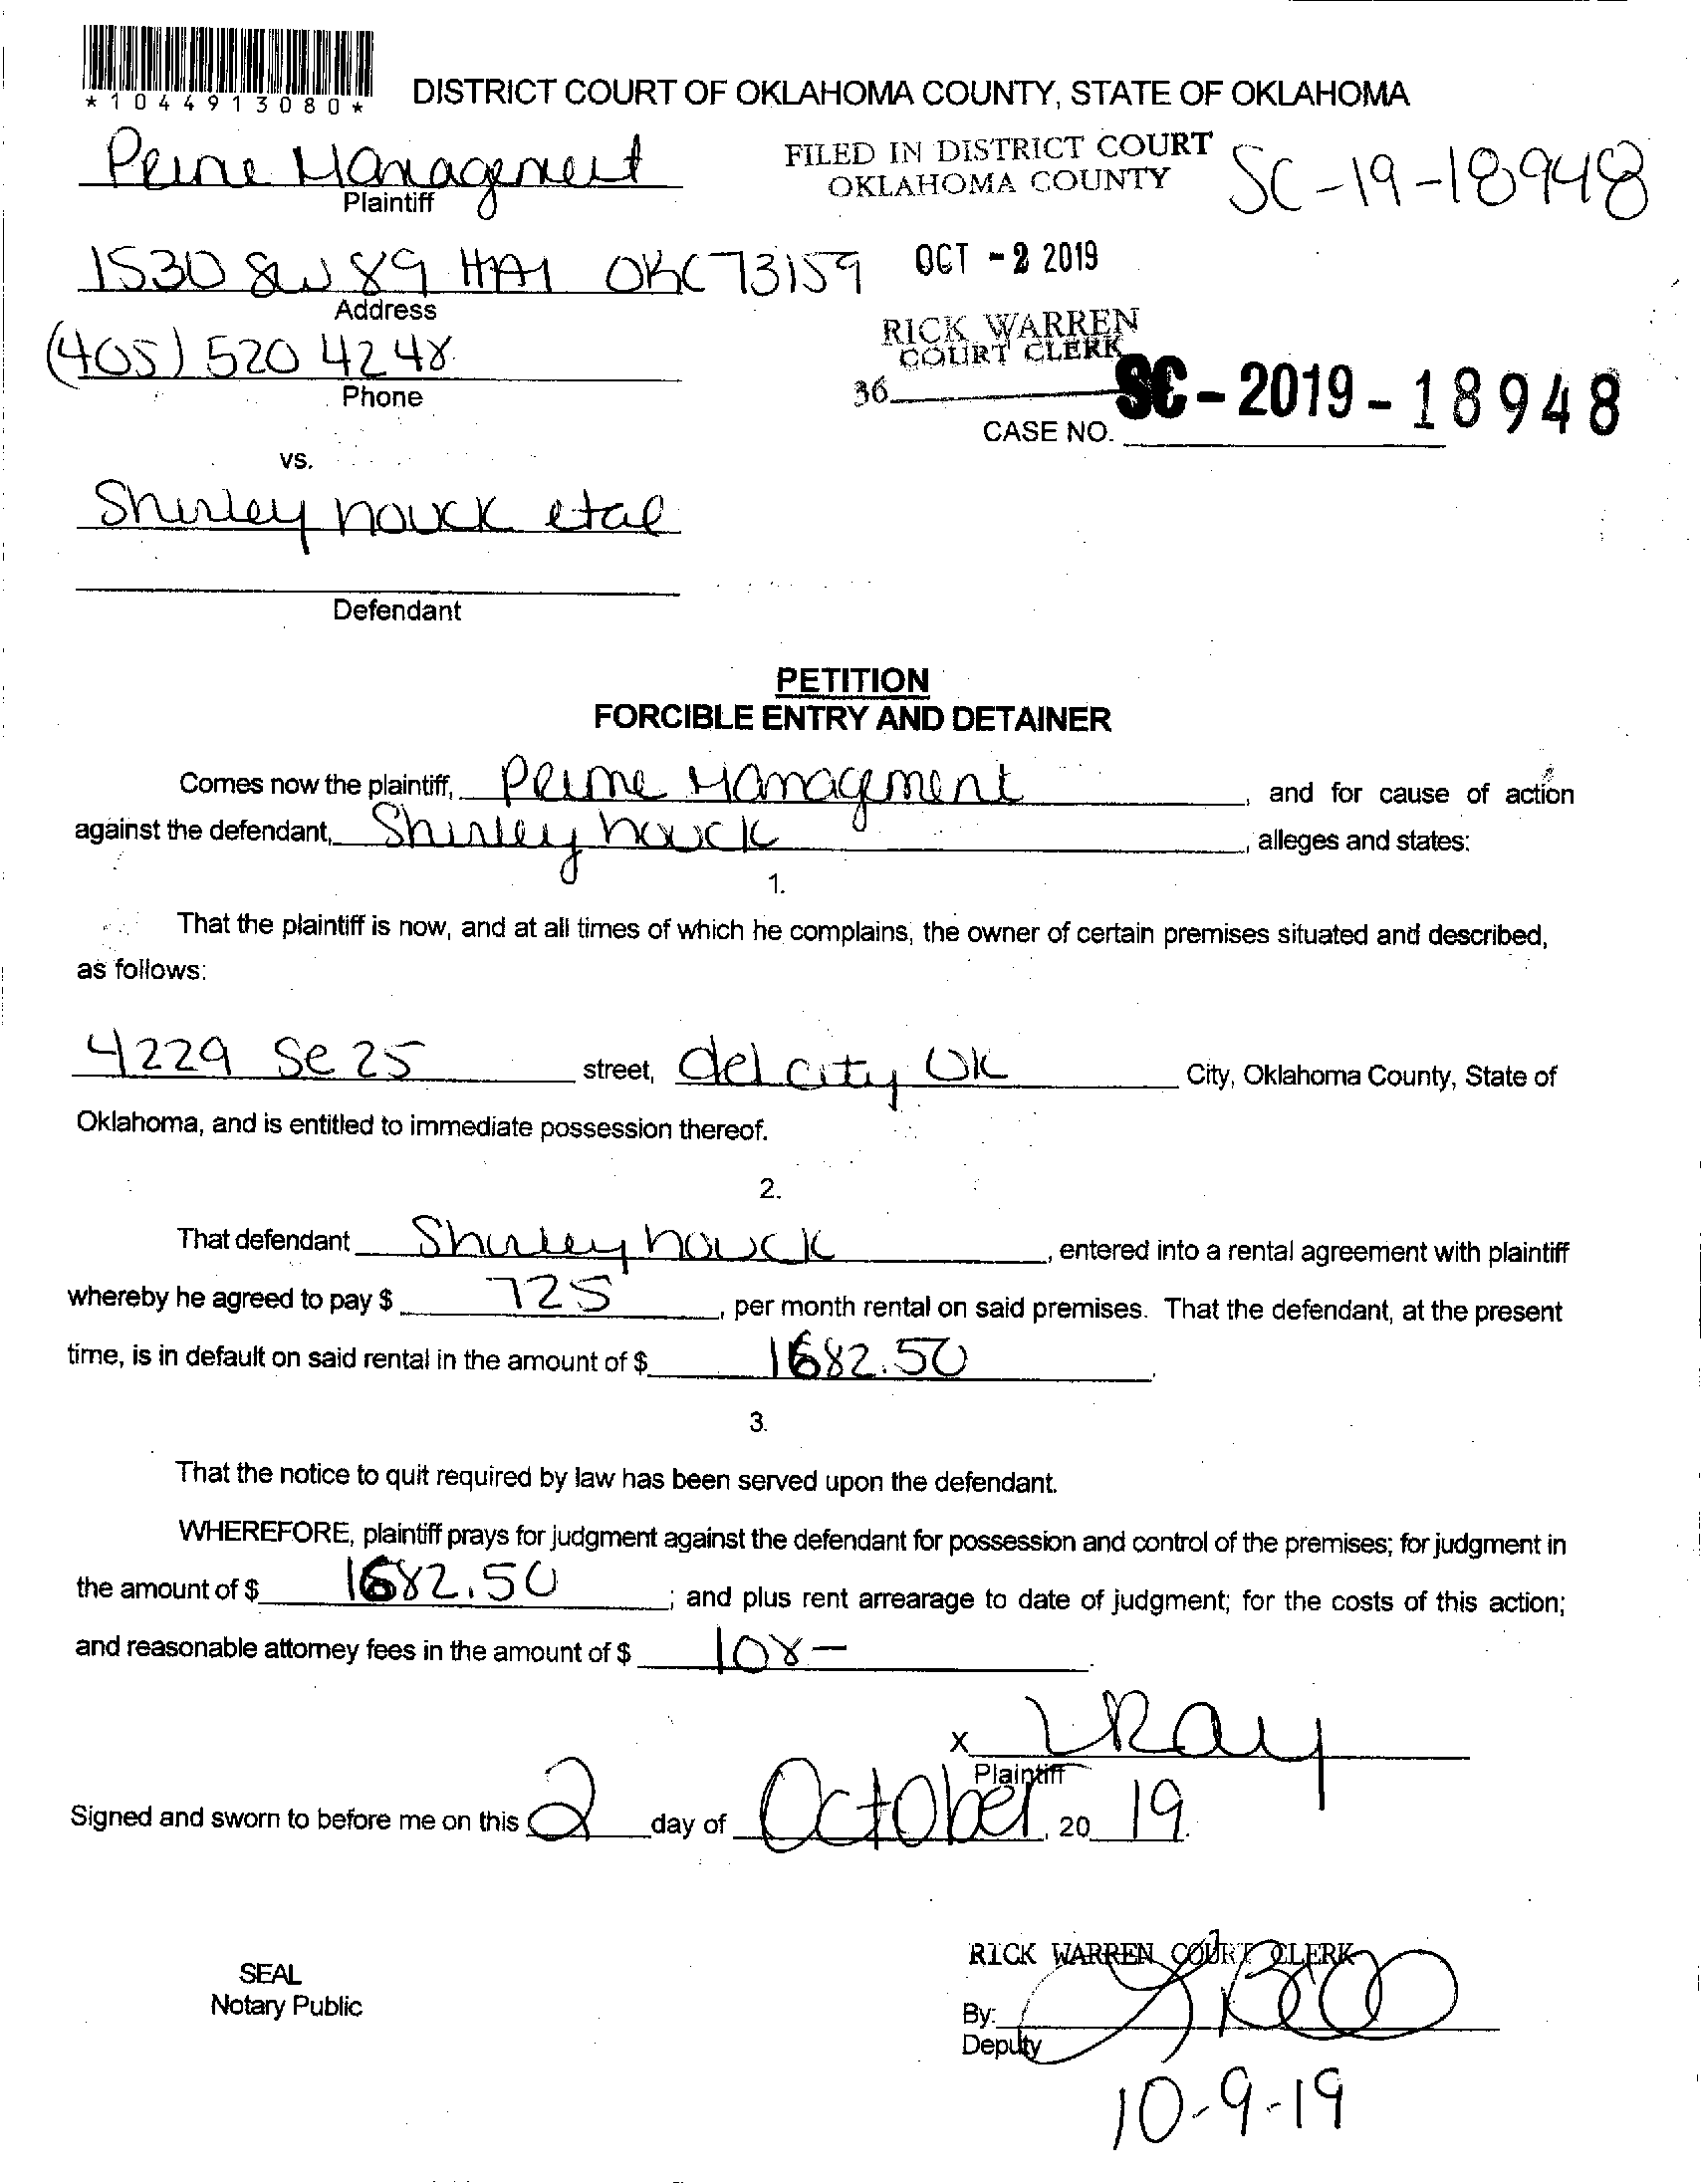 *1044913080*
DISTRICT COURT OF OKLAHOMA COUNTY, STATE OF OKLAHOMA
Prime Management
Plaintiff
FILED IN DISTRICT COURT
OKLAHOMA COUNTY
SC-19-18948
1530 SW 89 OKC 73159
Address
OCT - 2 2019
(405) 520 4248
Phone
RICK WARREN
COURT CLERK
36
CASE NO. SC-2019-18948
vs.
Shirley houck etal
Defendant
PETITION
FORCIBLE ENTRY AND DETAINER
Comes now the plaintiff, Prime Management, and for cause of action
against the defendant, Shirley houck, alleges and states:
1.
That the plaintiff is now, and at all times of which he complains, the owner of certain premises situated and described,
as follows:
4229 Se 25 street, del city OK City, Oklahoma County, State of
Oklahoma, and is entitled to immediate possession thereof.
2.
That defendant Shirley houck, entered into a rental agreement with plaintiff
whereby he agreed to pay $ 725, per month rental on said premises. That the defendant, at the present
time, is in default on said rental in the amount of $ 1682.50.
3.
That the notice to quit required by law has been served upon the defendant.
WHEREFORE, plaintiff prays for judgment against the defendant for possession and control of the premises; for judgment in
the amount of $ 1682.50; and plus rent arrearage to date of judgment; for the costs of this action;
and reasonable attorney fees in the amount of $ 108-.
X LRay
Plaintiff
Signed and sworn to before me on this 2 day of October, 20 19.
RICK WARREN COURT CLERK
SEAL
Notary Public
By:
Deputy
10-9-19